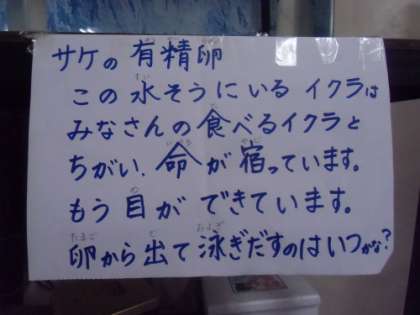 サケの有精卵
この水そうにいるイクラは
みなさんの食べるイクラと
ちがい、命が宿っています。
もう目ができています。
卵から出て泳ぎだすのはいつかな?